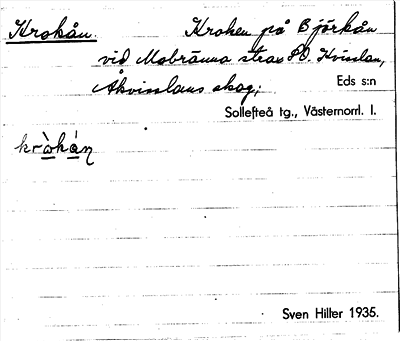 Krokån. Kroken på Björkån
vid Mobränna strax SO. Kvisslan,
Åkvisslans skog; Eds s:n
Sollefteå tg., Västernorrl. l.
krὼkán
Sven Hilter 1935.